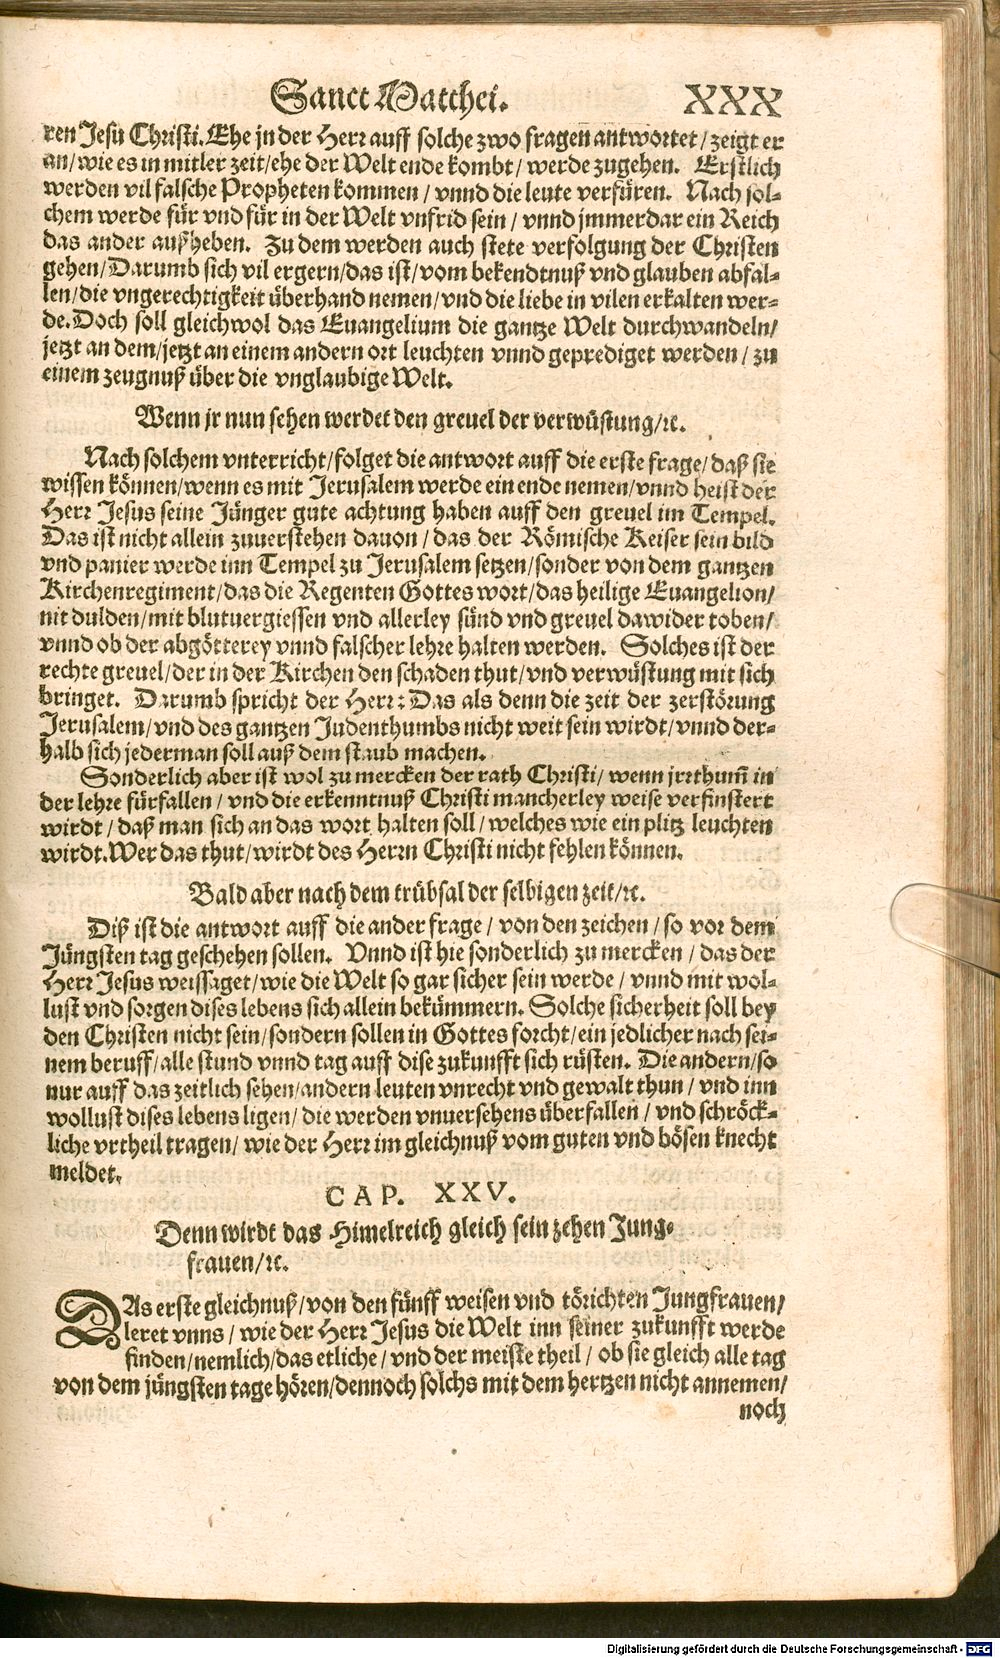 Sanct Matthei. XXX
ren Jesu Christi. Ehe jn der Herr auff solche zwo fragen antwortet / zeigt er
an / wie es in mitler zeit / ehe der Welt ende kombt / werde zugehen. Erstlich
werden vil falsche Propheten kommen / vnnd die leute verfüren. Nach sol-
chem werde für vnd für in der Welt vnfrid sein / vnnd jmmerdar ein Reich
das ander außheben. Zu dem werden auch stete verfolgung der Christen
gehen / Darumb sich vil ergern / das ist / vom bekendtnuß vnd glauben abfal-
len / die vngerechtigkeit überhand nemen / vnd die liebe in vilen erkalten wer-
de. Doch soll gleichwol das Euangelium die gantze Welt durchwandeln /
jetzt an dem / jetzt an einem andern ort leuchten vnnd geprediget werden / zu
einem zeugnuß über die vnglaubige Welt.
Wenn jr nun sehen werdet den greuel der verwüstung / ꝛc.
Nach solchem vnterricht / folget die antwort auff die erste frage / daß sie
wissen können / wenn es mit Jerusalem werde ein ende nemen / vnnd heist der
Herr Jesus seine Jünger gute achtung haben auff den greuel im Tempel.
Das ist nicht allein zuuerstehen dauon / das der Römische Keiser sein bild
vnd panier werde inn Tempel zu Jerusalem setzen / sonder von dem gantzen
Kirchenregiment / das die Regenten Gottes wort / das heilige Euangelion /
nit dulden / mit blutuergiessen vnd allerley sünd vnd greuel dawider toben /
vnnd ob der abgötterey vnnd falscher lehre halten werden. Solches ist der
rechte greuel / der in der Kirchen den schaden thut / vnd verwüstung mit sich
bringet. Darumb spricht der Herr : Das als denn die zeit der zerstörung
Jerusalem / vnd des gantzen Judenthumbs nicht weit sein wirdt / vnnd der-
halb sich jederman soll auß dem staub machen.
Sonderlich aber ist wol zu mercken der rath Christi / wenn jrrthum̃ in
der lehre fürfallen / vnd die erkenntnuß Christi mancherley weise verfinstert
wirdt / daß man sich an das wort halten soll / welches wie ein plitz leuchten
wirdt. Wer das thut / wirdt des Herrn Christi nicht fehlen können.
Bald aber nach dem trübsal der selbigen zeit / ꝛc.
Diß ist die antwort auff die ander frage / von den zeichen / so vor dem
Jüngsten tag geschehen sollen. Vnnd ist hie sonderlich zu mercken / das der
Herr Jesus weissaget / wie die Welt so gar sicher sein werde / vnnd mit wol-
lust vnd sorgen dises lebens sich allein bekümmern. Solche sicherheit soll bey
den Christen nicht sein / sondern sollen in Gottes forcht / ein jedlicher nach sei-
nem beruff / alle stund vnnd tag auff dise zukunfft sich rüsten. Die andern / so
nur auff das zeitlich sehen / andern leuten vnrecht vnd gewalt thun / vnd inn
wollust dises lebens ligen / die werden vnuersehens überfallen / vnd schröck-
liche vrtheil tragen / wie der Herr im gleichnuß vom guten vnd bösen knecht
meldet.
CAP. XXV.
Denn wirdt das Himelreich gleich sein zehen Jung-
frauen / ꝛc.
DAs erste gleichnuß / von den fünff weisen vnd törichten Jungfrauen /
leret vnns / wie der Herr Jesus die Welt inn seiner zukunfft werde
finden / nemlich / das etliche / vnd der meiste theil / ob sie gleich alle tag
von dem jüngsten tage hören / dennoch solchs mit dem hertzen nicht annemen /
noch
Digitalisierung gefördert durch die Deutsche Forschungsgemeinschaft - DFG